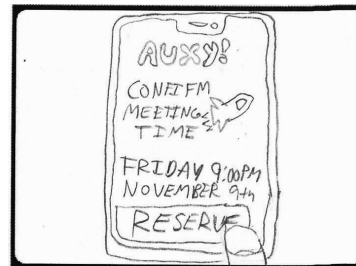 AUXY!
CONFIFM
MEETING
TIME
FRIDAY 9:00PM
NOVEMBER 9th
RESERVE